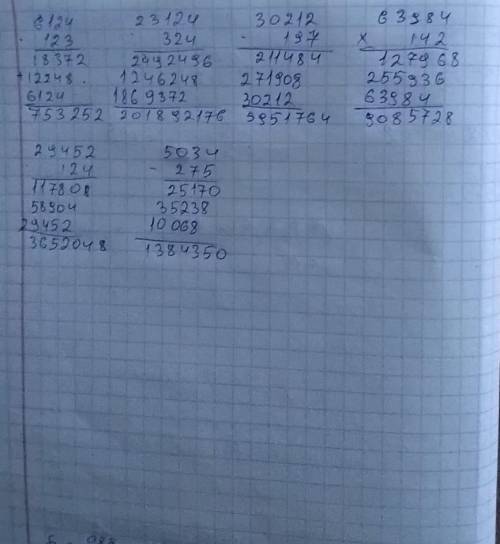 6124
· 123
18372
+12248.
6124
753252
23124
· 324
2492496
1246248
1869372
201892176
30212
· 197
211484
271908
30212
5951764
63984
× 142
127968
255936
63984
9085728
29452
· 124
117808
58904
29452
3652048
5034
- 275
25170
35238
10068
1384350